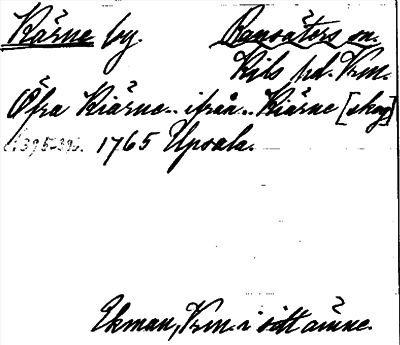 Kärne by. Ransäters sn.
Kils hd. Vrm.
Öfra Kiärne.. ifrån.. Kiärne [skog]
1765 Upsala.
Ekman, Vrm. i sitt ämne.